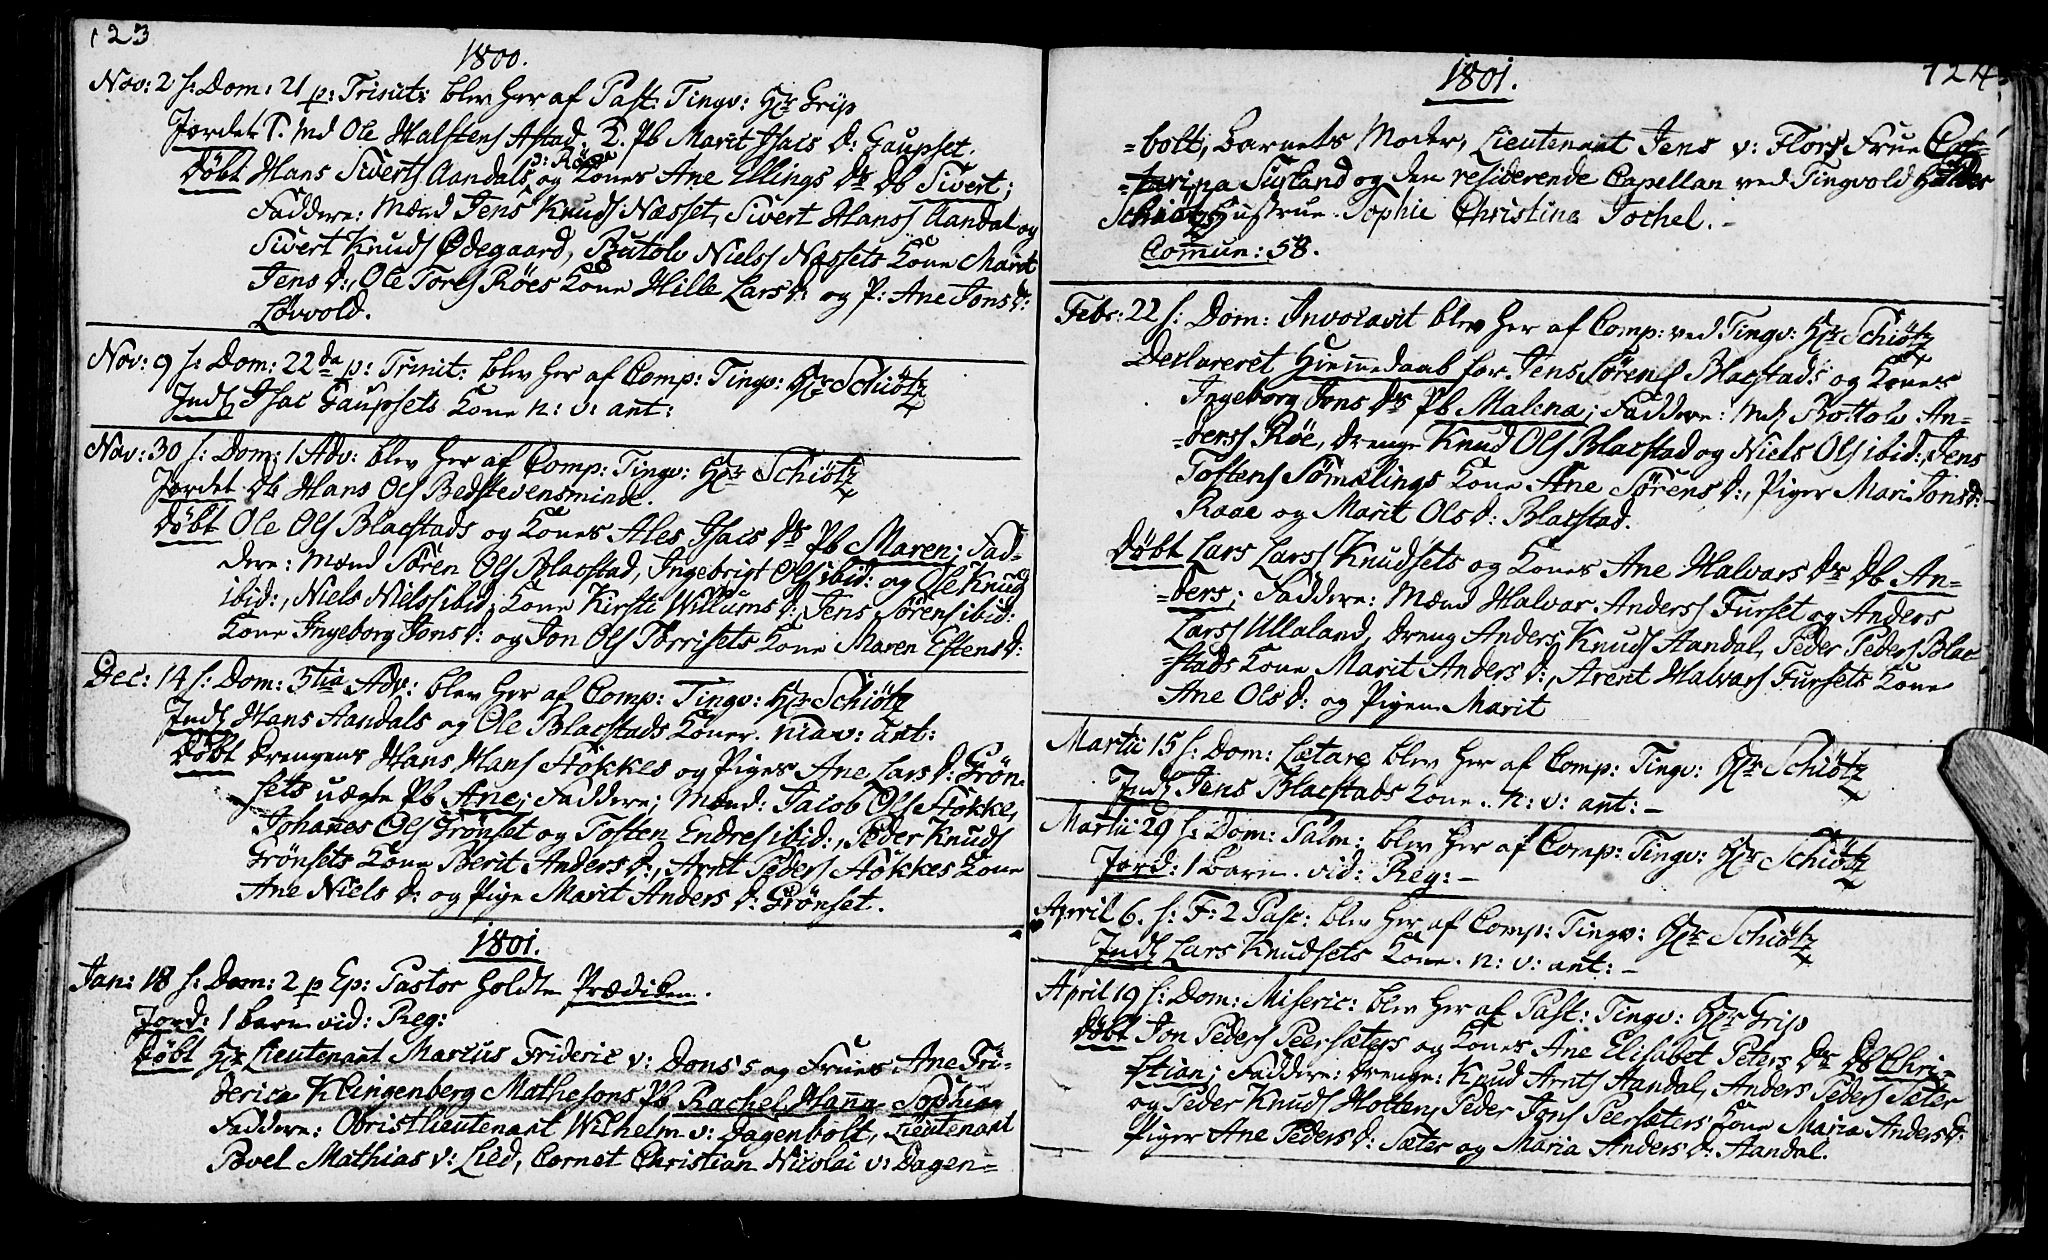 123
1800.
Nov: 2 s: Dom: 21 p: Trinit: blev her af Past: Tingv: Hr Grip
Jordet S. Md Ole Halstens Astad. 2. Pb Marit Isacs D: Gaupset.
Döbt Hans Siverts Aandals og Kones Ane Ellings Dr Db Sivert;
Faddere: Mænd Jens Knuds Næsset, Sivert Hanss Aandal og
Sivert Knuds Ødegaard, Botolv Nielss Næssets Kone Marit
Jens D:, Ole Tores Röes Kone Hille Lars D: og P: Ane Jons D:
Løvvold.
Nov: 9 s: Dom: 22da p: Trinit: blev her af Comp: Tingv: Hr Schiötz
Indl Isac Gaupsets Kone n: v: ant:
Nov: 30 s: Dom: 1 Adv: blev her af Comp: Tingv: Hr Schiötz
Jordet Db Hans Ols Bedstevensminde
Döbt Ole Ols Blaestads og Kones Ales Isacs Dr Pb Maren; Fad-
dere: Mænd Sören Ols Blaestad, Ingebrigt Ols ibid: og Ole Knuds
ibid:, Niels Nielss ibid: Kone Kirsti Willums D:, Jens Sörens ibid:
Kone Ingeborg Jons D: og Jon Ols Torrisets Kone Maren Estens D:
Dec: 14 s: Dom: 3tia Adv: blev her af Comp: Tingv: Hr Schiötz
Indl Hans Aandals og Ole Blaestads Koner. n: v: ant:
Döbt Drengens Hans Hans Stökkes og Piges Ane Lars D: Grön-
sets uægte Pb Ane; Faddere; Mænd: Jacob Ols Stökke,
Johanes Ols Grönset og Tosten Endres ibid:, Peder Knuds
Grönsets Kone Berit Anders D:, Arnt Peders Stökkes Kone
Ane Niels D: og Pige Marit Anders D: Grönset.
1801.
Jan: 18 s: Dom: 2 p Ep: Pastor holdte Prædiken.
Jord: 1 barn vid: Reg:
Döbt Hr Lieutenant Marcus Frideric v: Dons's og Frues Ane Fri-
derica Klingenberg Mathesons Pb Rachel Hanna Sophia
Faddere: Obristlieutenant Wilhelm v: Dagenbolt, Lieutenant
Povel Mathias v: Lied, Cornet Christian Nicolai v: Dagen-
1801.
124
-bolt, Barnets Moder, Lieutenant Jens v: Flors Frue Cat-
-tarina Surland og den residerende Capellan ved Tingvold
Schiötz Hustrue Sophie Christina Tochel.-
Commun: 58.
Febr: 22 s: Dom: Invocavit blev her af Comp: ved Tingv: Hr Schiötz
Declareret Hiemedaab for Jens Sörens Blaestads og Kones
Ingeborg Jons Dr Pb Malena; Faddere: Md Bottolv An-
-derss Röe, Drenge Knud Ols Blaestad og Niels Ols ibid:, Jens
Tostens Sömelings Kone Ane Sörens D:, Piger Mari Jons D:
Raae og Marit Ols D: Blaestad.
Döbt Lars Larss Knudsets og Kones Ane Halvars Dr Db An-
-ders; Faddere: Mænd Halvar Anderss Furset og Anders
Larss Ullaland, Dreng Anders Knuds Aandal, Peder Peders Blae-
-stads Kone Marit Anders D:, Arent Halvars Fursets Kone
Ane Ols D: og Pigen Marit
Martii 15 s: Dom: Lætare blev her af Comp: Tingv: Hr Schiötz
Indl Jens Blaestads Kone. n: v: ant:-
Martii 29 s: Dom: Palm: blev her af Comp: Tingv: Hr Schiötz
Jord: 1 Barn. vid: Reg:-
April 6. s: F: 2 Pasc: blev her af Comp: Tingv: Hr Schiötz
Indl Lars Knudsets Kone. n: v: ant:-
April 19 s: Dom: Miseric: blev her af Past: Tingv: Hr Grip
Döbt Jon Peders Peersæters og Kones Ane Elisabet Peters Dr Db Chri-
stian; Faddere: Drenge: Knud Arnts Aandal, Anders Peders Sæter
og Peder Knuds Holten, Peder Jons Peersæters Kone Maria Anders D:
Piger Ane Peders D: Sæter og Maria Anders D: Aandal.